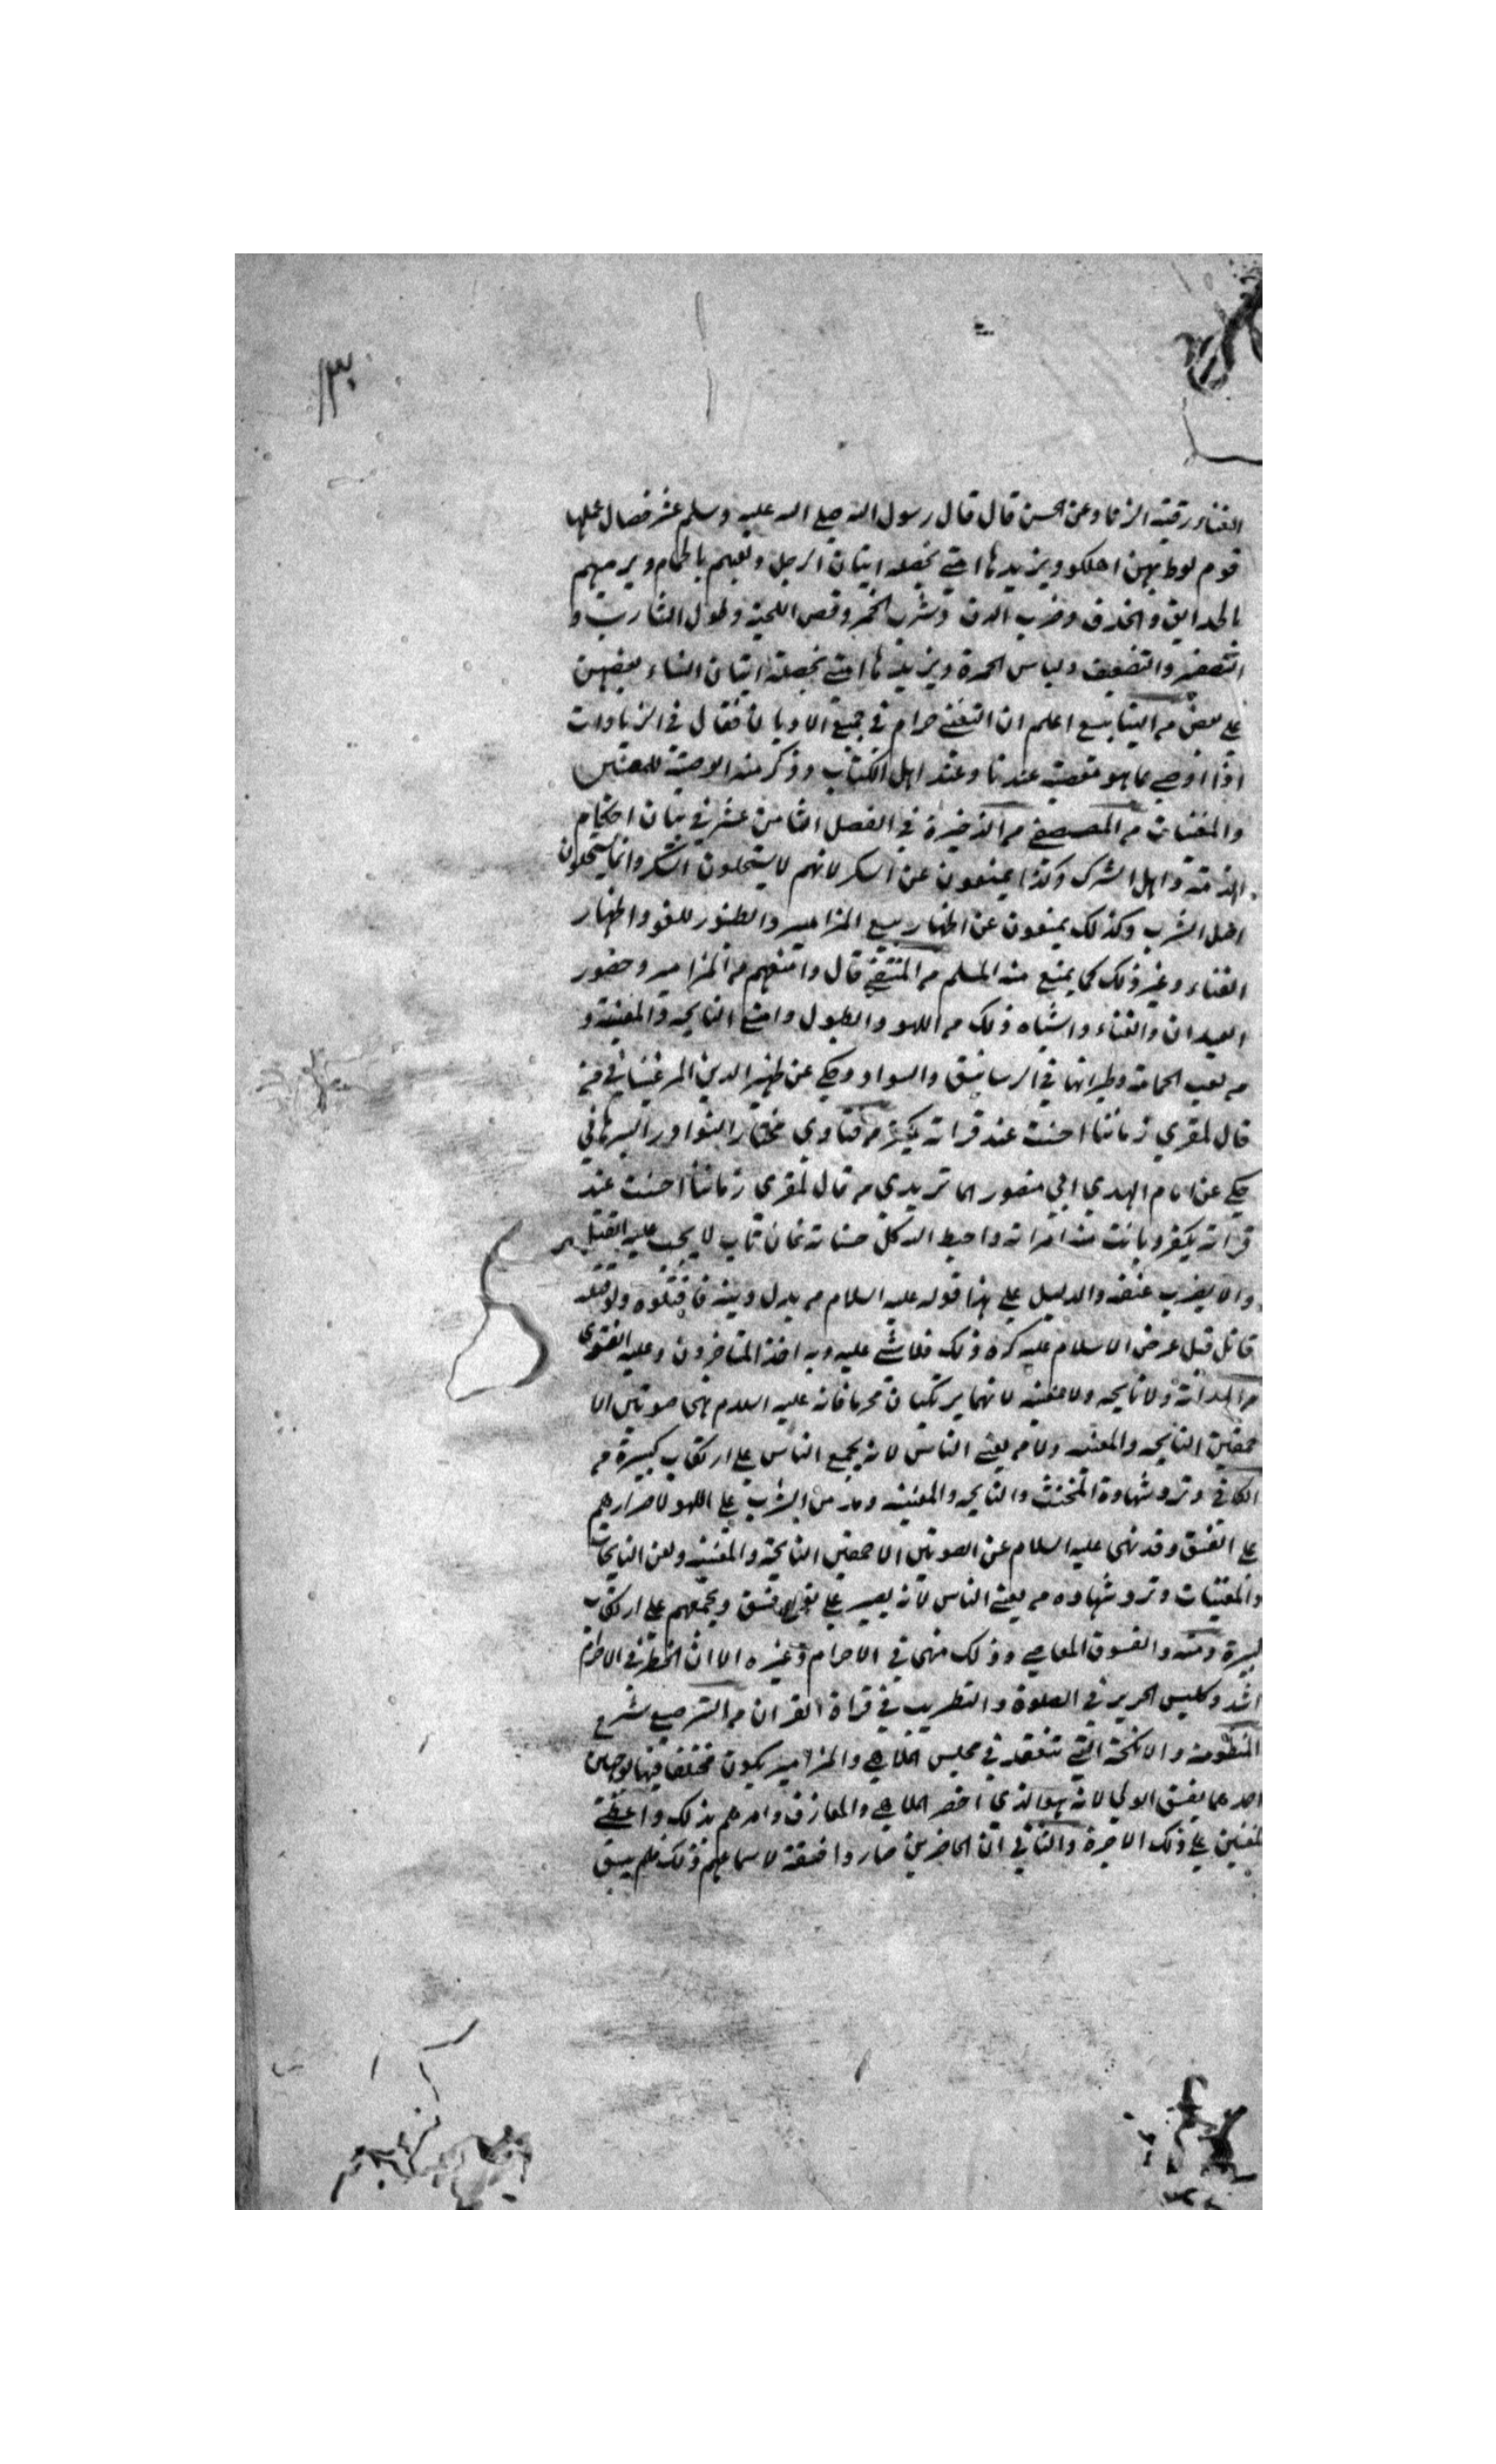 ١٣٠
الغناء رقية الزنا وعن الحسن قال قال رسول الله صلى الله عليه وسلم عشر خصال عملها
قوم لوط بهن اهلكوا ويزيدها امتي بخصلة اتيان الرجل ولعبهم بالحمام ويرميهم
بالجدايق والخذف وضرب الدف وشرب الخمر وقص اللحية وطول الشارب و
التصفير والتصفيق ولباس الحمرة ويزيدها امتي بخصلة اتيان النساء بعضهن
على بعض من الينابيع اعلم ان التغني حرام في جميع الاديان فقال في الزيادات
اذا اوصى بما هو معصية عندنا وعند اهل الكتاب وذكر منه الوصية للمغنين
والمغنيات من المصفى من الذخيرة في الفصل الثامن عشر في بيان احكام
اهل الذمة واهل الشرك وكذا يمنعون عن السكر لانهم لا يستحلون السكر وانما يستحلون
اصل الشرب وكذلك يمنعون عن اظهار بيع المزامير والطنبور للهو واظهار
الغناء وغير ذلك كما يمنع منه المسلم من المنتقى قال وامنعهم من المزامير وحضور
العيدان والغناء واشباه ذلك من اللهو والطبول وامنع النايحة والمغنية و
من لعب الحمامة وطيرانها في الرساتيق والسواد وحكي عن ظهير الدين المرغيناني من
قال لمقري زماننا احسنت عند قراته يكفر من فتاوي مختار النوادر البرهاني
حكي عن امام الهدي ابي منصور الماتريدي من قال لمقري زماننا احسنت عند
قراته يكفر وبانت منه امراته واحبط الله كل حسناته فان تاب لا يجب عليه القتل
والا يضرب عنقه والدليل على هذا قوله عليه السلام من بدل دينه فاقتلوه ولو قتله
قاتل قبل عرض الاسلام عليه كره ذلك فلا شي عليه وبه اخذ المتاخرون وعليه الفتوى
من الهداية ولا نايحة ولا مغنية لانهما يرتكبان محرما فانه عليه السلام نهى صوتين الا
حمقين النايحة والمغنية ولا من يغني الناس لانه يجمع الناس على ارتكاب كبيرة من
الكافي وترد شهادة المخنث والنايحة والمغنية ومدمن الشرب على اللهو لاصرارهم
على الفسق وقد نهى عليه السلام عن الصوتين الاحمقين النايحة والمغنية ولعن النايحات
والمغنيات وترد شهادة من يغني الناس لانه يصير على نوع فسق ويجمعهم على ارتكاب
كبيرة ومنه والفسوق المعاصي وذلك منهي في الاحرام وغيره الا ان الحظر في الاحرام
اشد وكلبس الحرير في الصلوة والتطريب في قراة القران من الترصيع شرح
المنظومة والانكحة التي تنعقد في مجلس الملاهي والمزامير يكون مختلفا فيها لوجهين
احدهما يفسق الولي لانه هو الذي احضر الملاهي والمعازف وامرهم بذلك واعطى
لمغنين على ذلك الاجرة والثاني ان الحاضرين صاروا فسقة لاسماعهم ذلك فلم يبق